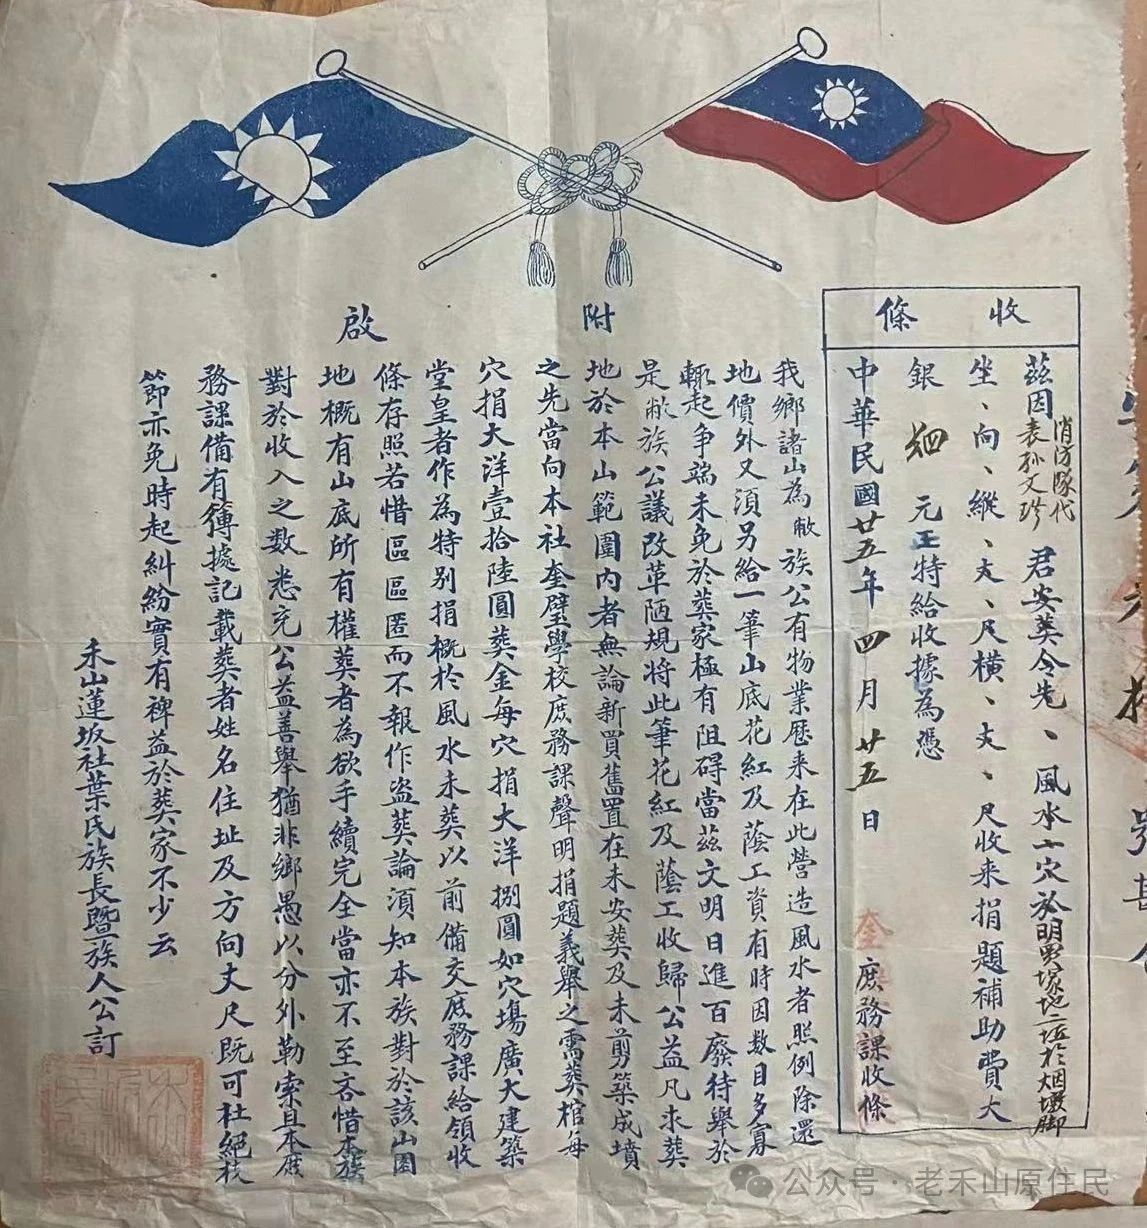 收條
茲因消防隊代表孫文珍君安葬令先、風水一穴於明男塚地一坵於烟墩脚
坐、向、縱、丈、尺橫、丈、尺收來捐題補助費大
銀 元正特給收據為憑
中華民國廿五年四月廿五日 奎 庶務課收條
附啟
我鄉諸山為敝族公有物業歷来在此營造風水者照例除還
地價外又須另給一筆山底花紅及蔭工資有時因数目多寡
輒起爭端未免於葬家極有阻碍當茲文明日進百廢待舉於
是敝族公議改革陋規將此筆花紅及蔭工收歸公益凡求葬
地於本山範圍内者無論新買舊置在未安葬及未剪築成墳
之先當向本社奎璧學校庶務課聲明捐題義舉之需葬棺每
穴捐大洋壹拾陸圓葬金每穴捐大洋捌圓如穴塲廣大建築
堂皇者作為特别捐概於風水未葬以前備交庶務課給領收
條存照若惜區區匿而不報作盗葬論須知本族對於該山園
地概有山底所有權葬者為欲手續完全當亦不至吝惜本族
對於收入之数悉充公益善舉猶非鄉愚以分外勒索且本庶
務課備有簿據記載葬者姓名住址及方向丈尺既可杜絕枝
節亦免時起糾紛實有裨益於葬家不少云
禾山蓮坂社葉氏族長暨族人公訂
公众号·老禾山原住民